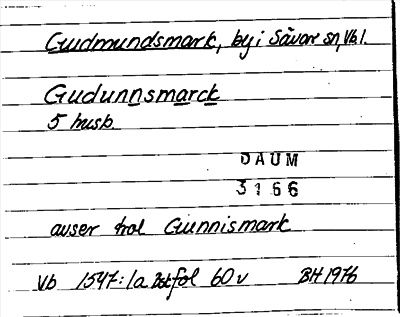 Gudmundsmark, by i Sävar sn, Vb.
Gudunnsmarck
5 husb.
DAUM
3166
avser trol Gunnismark
Vb 1547:1a fol 60 v BH 1976